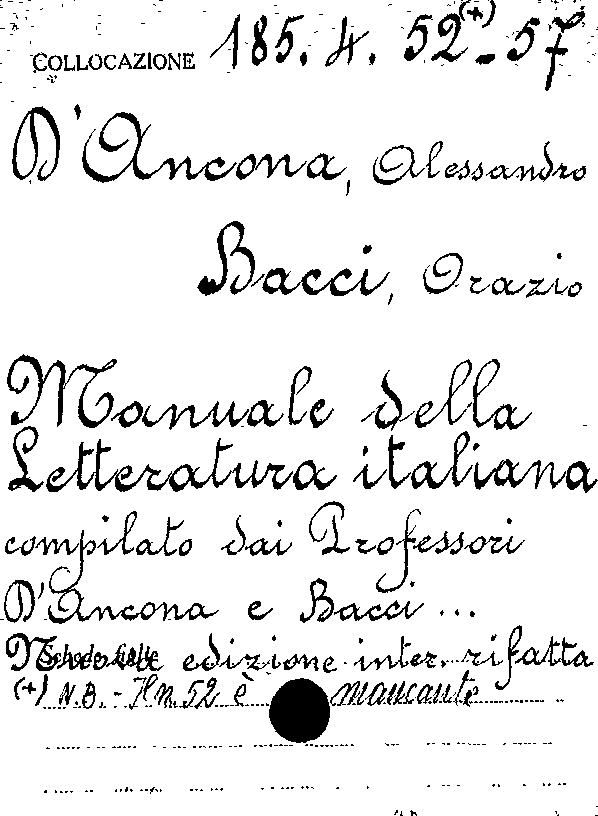 COLLOCAZIONE 185. 4. 52(+)-57
D'Ancona, Alessandro
Bacci, Orazio
Manuale della
Letteratura italiana
compilato dai Professori
D'Ancona e Bacci ...
Nuova edizione inter. rifatta
(+) N.B. - Il n. 52 è mancante